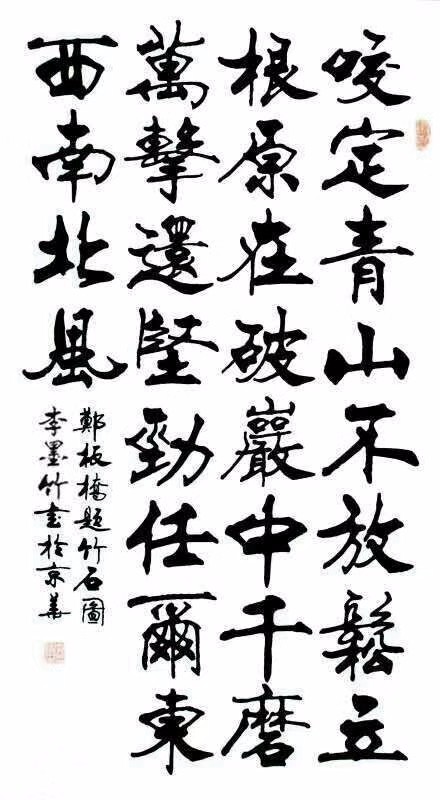 咬定青山不放鬆立
根原在破巖中千磨
萬擊還堅勁任爾東
西南北風
鄭板橋題竹石圖
李墨竹書於京華